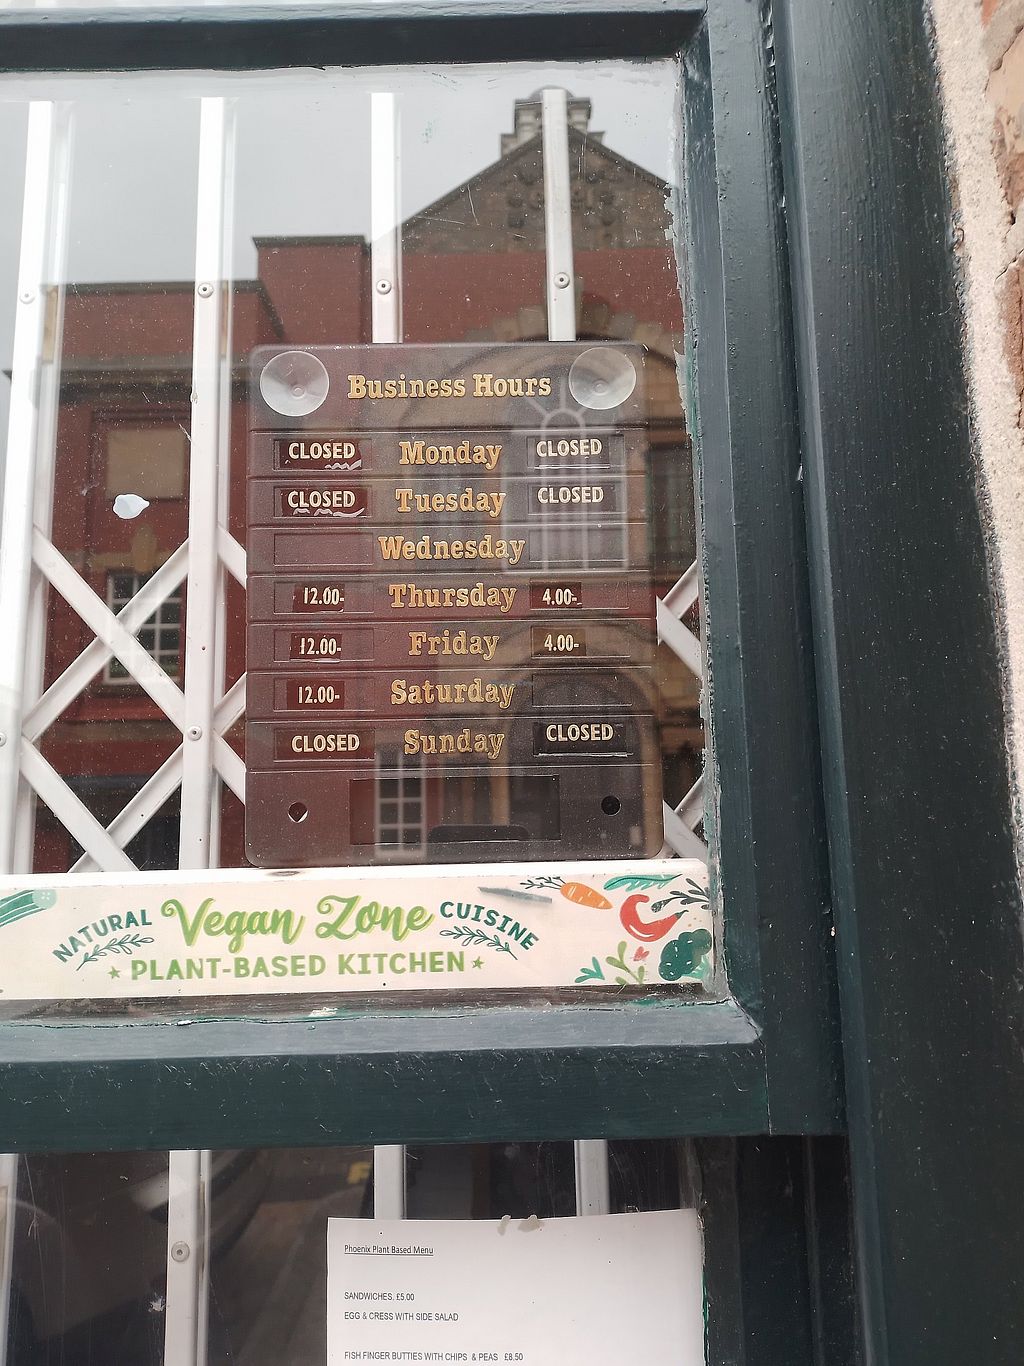 Business Hours
CLOSED Monday CLOSED
CLOSED Tuesday CLOSED
Wednesday
12.00- Thursday 4.00-
12.00- Friday 4.00-
12.00- Saturday
CLOSED Sunday CLOSED
NATURAL Vegan Zone CUISINE
PLANT-BASED KITCHEN
Phoenix Plant Based Menu
SANDWICHES, £5.00
EGG & CRESS WITH SIDE SALAD
FISH FINGER BUTTIES WITH CHIPS & PEAS £8.50